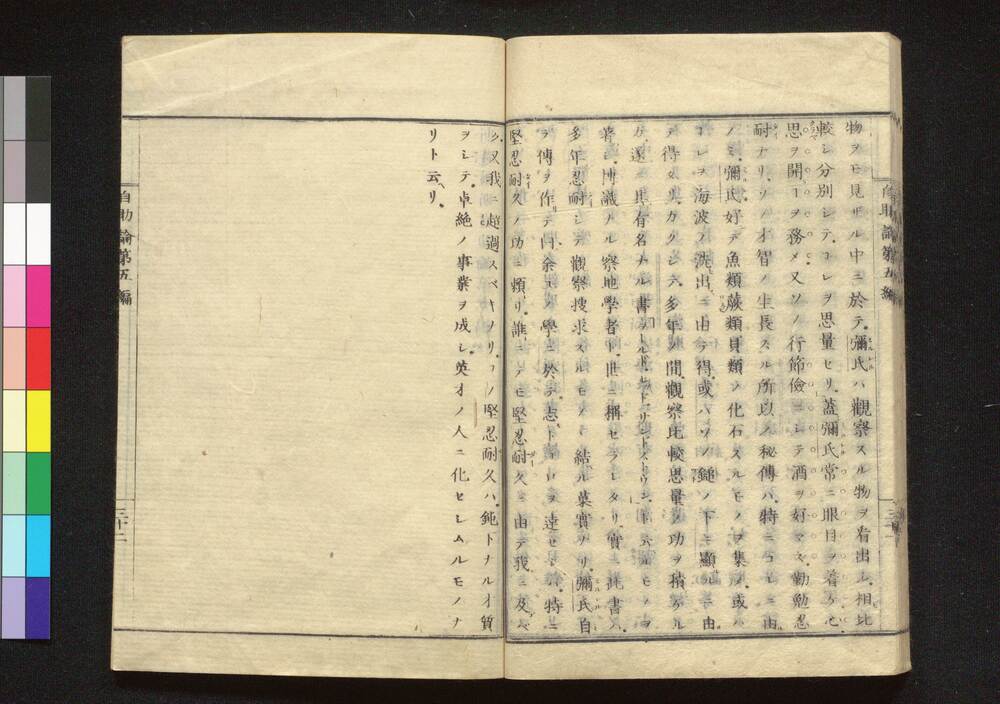 物ヲモ見ザル中ニ於テ。彌氏ハ觀察スル物ヲ看出シ。相比
較シ分別シテ。コレヲ思量セリ。蓋彌氏常ニ眼目ヲ着ケ心
思ヲ開クヿヲ務メ又ソノ行節儉ニシテ酒ヲ好マズ。勤勉忍
耐ナリ。ソノ才智ノ生長スル所以ノ秘傳ハ。特ニコレニ由
ノミ。彌氏好デ魚類蕨類貝類ノ化石スルモノヲ集メ。或ハ
コレヲ海波ノ洗出ニ由テ得。或ハソノ鎚ノ下ニ顯ルヽニ由
テ得。
多年ノ間。觀察比較思量ノ功ヲ積ケル
其有名ナル書
著シ。博識ナル察地學者ト世ニ稱セラレタリ。實ニ此書ハ。
多年忍耐シテ觀察捜求スルモノヽ結ル菓實ナリ。彌氏自
ヲ傳ヲ作テ曰。余コノ學ニ於テ。志トコロヲ達セシハ。特ニ
堅忍耐久ノ功ニ頼リ。誰ニテモ堅忍耐久ニ由テ我ニ及ベ
ク。又我ニ超過スベキナリ。コノ堅忍耐久ハ。鈍トナル才質
ヲシテ。卓絶ノ事業ヲ成シ。英才ノ人ニ化セシムルモノナ
リト云リ。
自助論第五編
三十一
自助論第五編
三十二